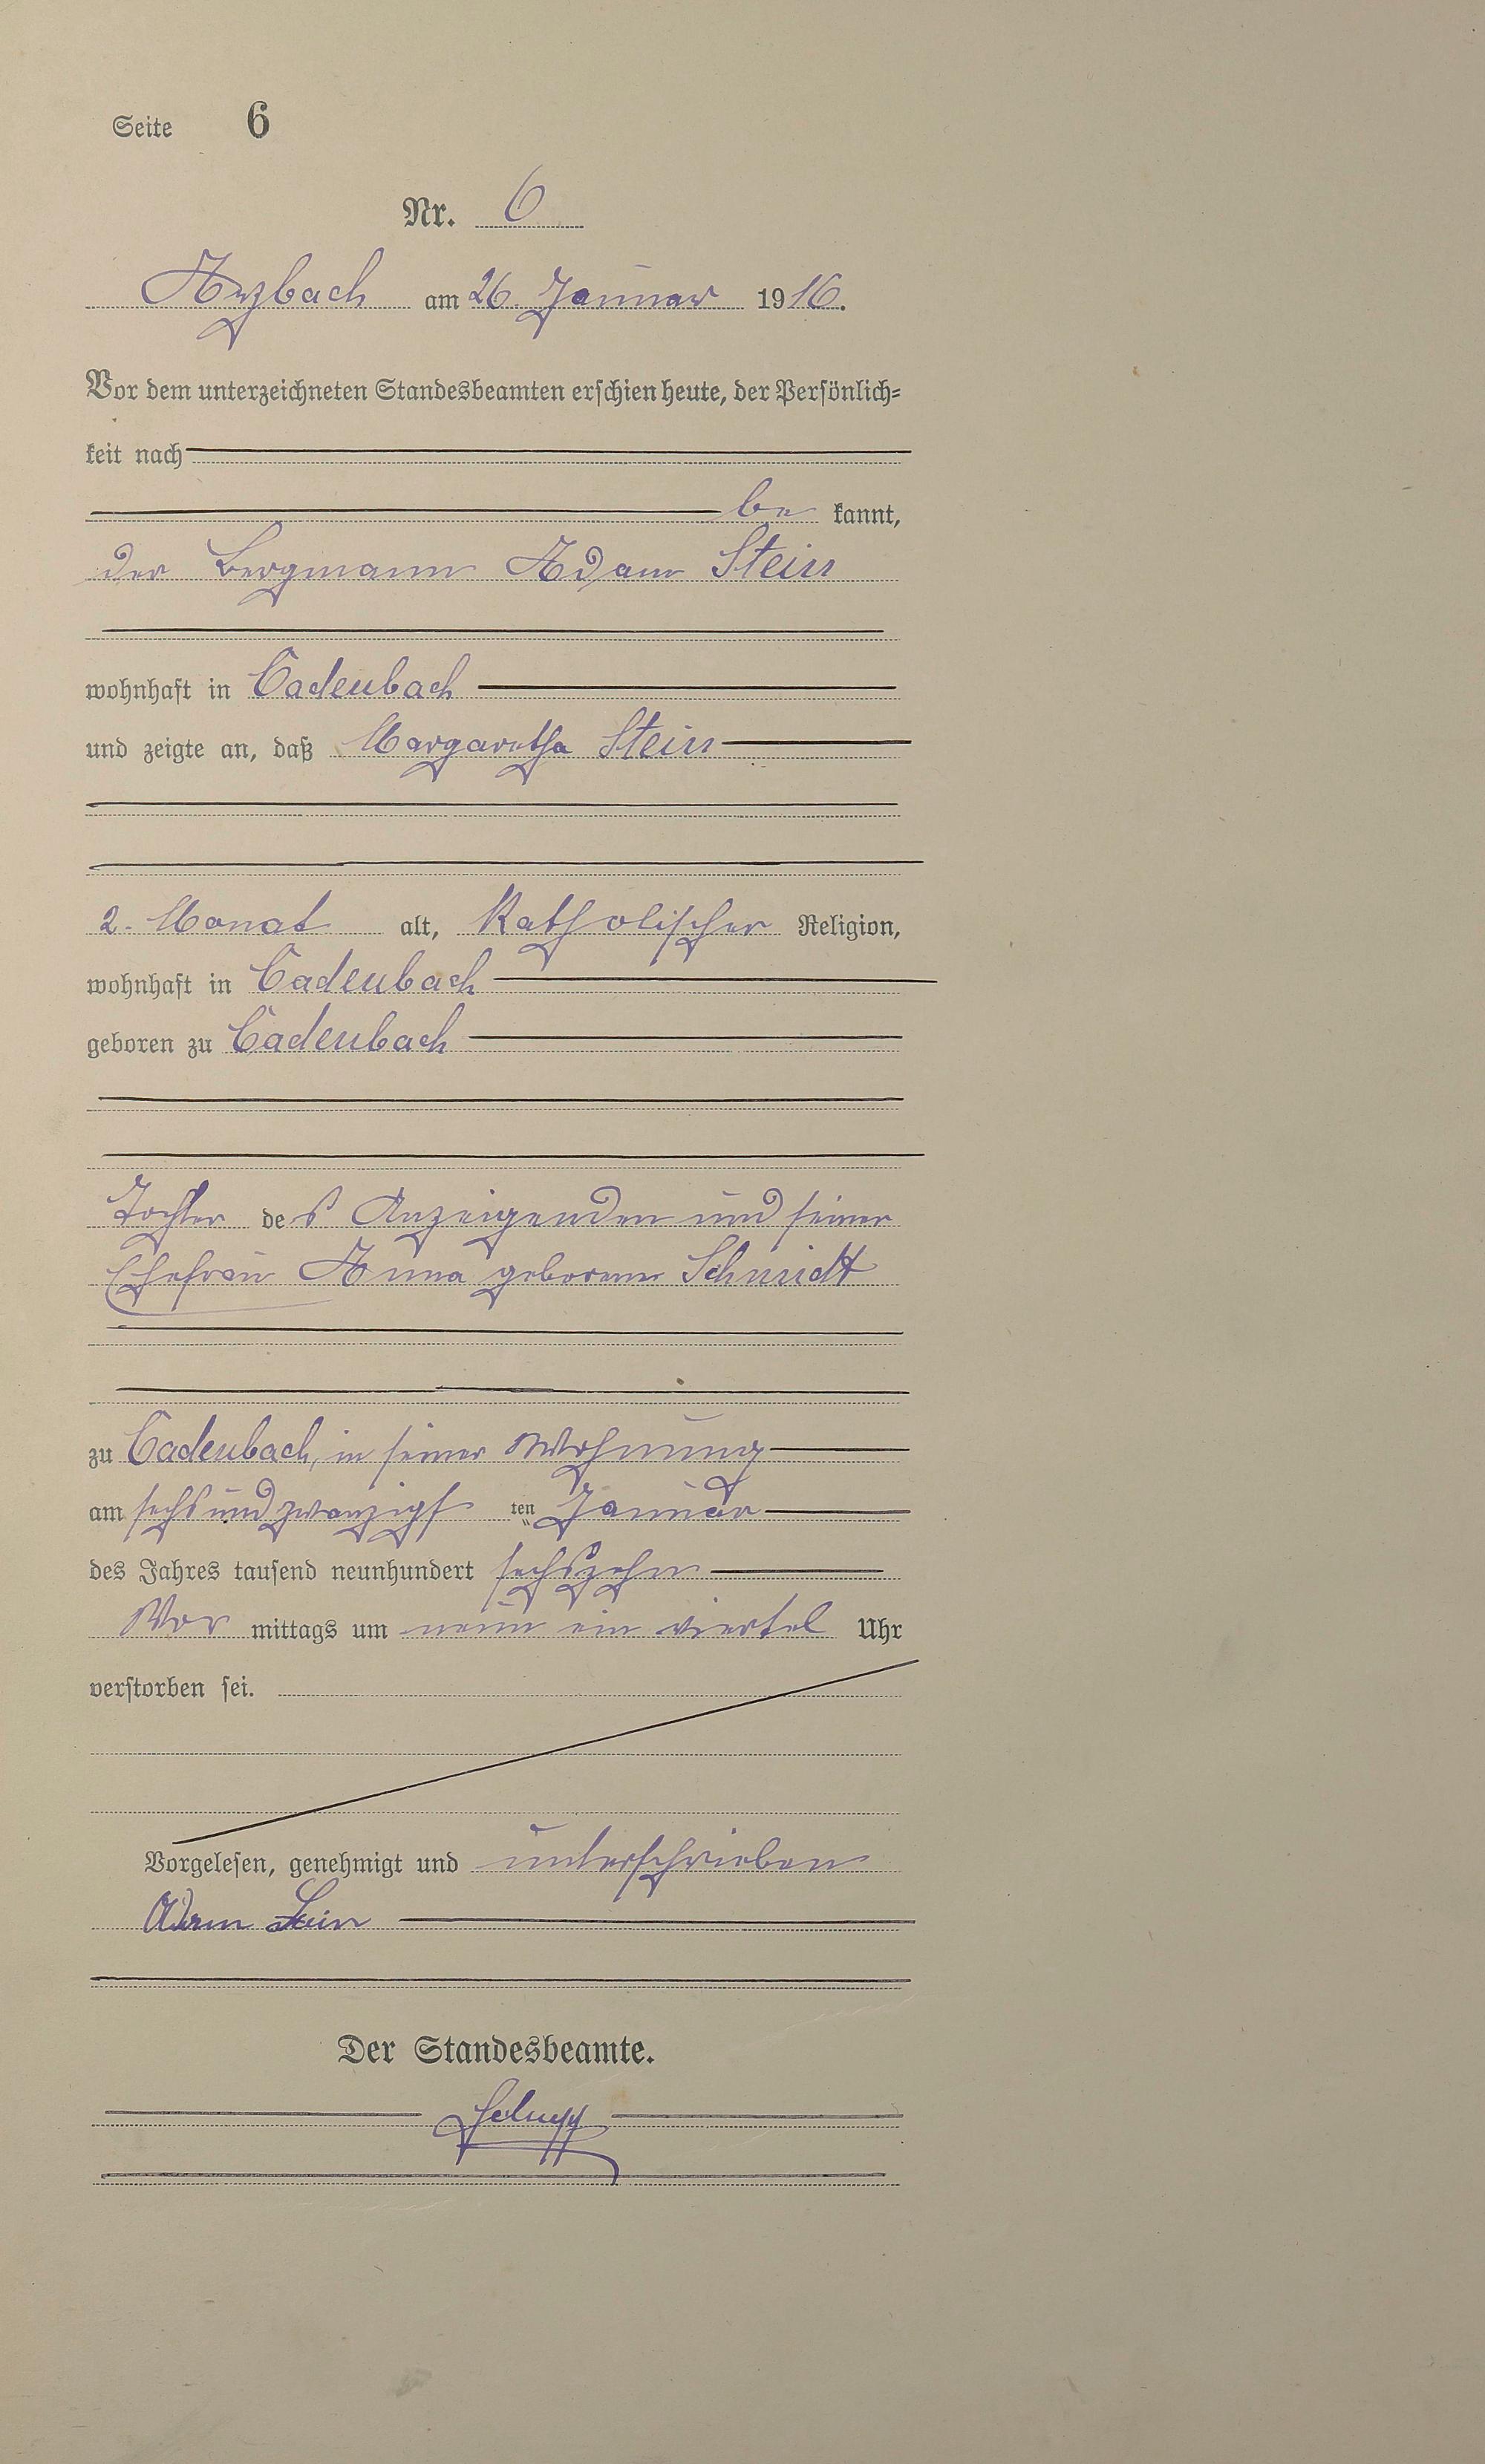 Seite 6
Nr. 6
Arzbach am 26. Januar 1916.
Vor dem unterzeichneten Standesbeamten erschien heute, der Persönlich=
keit nach
be kannt,
der Bergmann Adam Stein
wohnhaft in Cadenbach
und zeigte an, daß Margaretha Stein
2. Monat alt, Katholischer Religion,
wohnhaft in Cadenbach
geboren zu Cadenbach
Tochter des Anzeigenden und seiner
Ehefrau Anna geborene Schmidt
zu Cadenbach, in seiner Wohnung
am sechsundzwanzigs ten Januar
des Jahres tausend neunhundert sechszehn
Vor mittags um neun ein viertel Uhr
verstorben sei.
Vorgelesen, genehmigt und unterschrieben
Adam Stein
Der Standesbeamte.